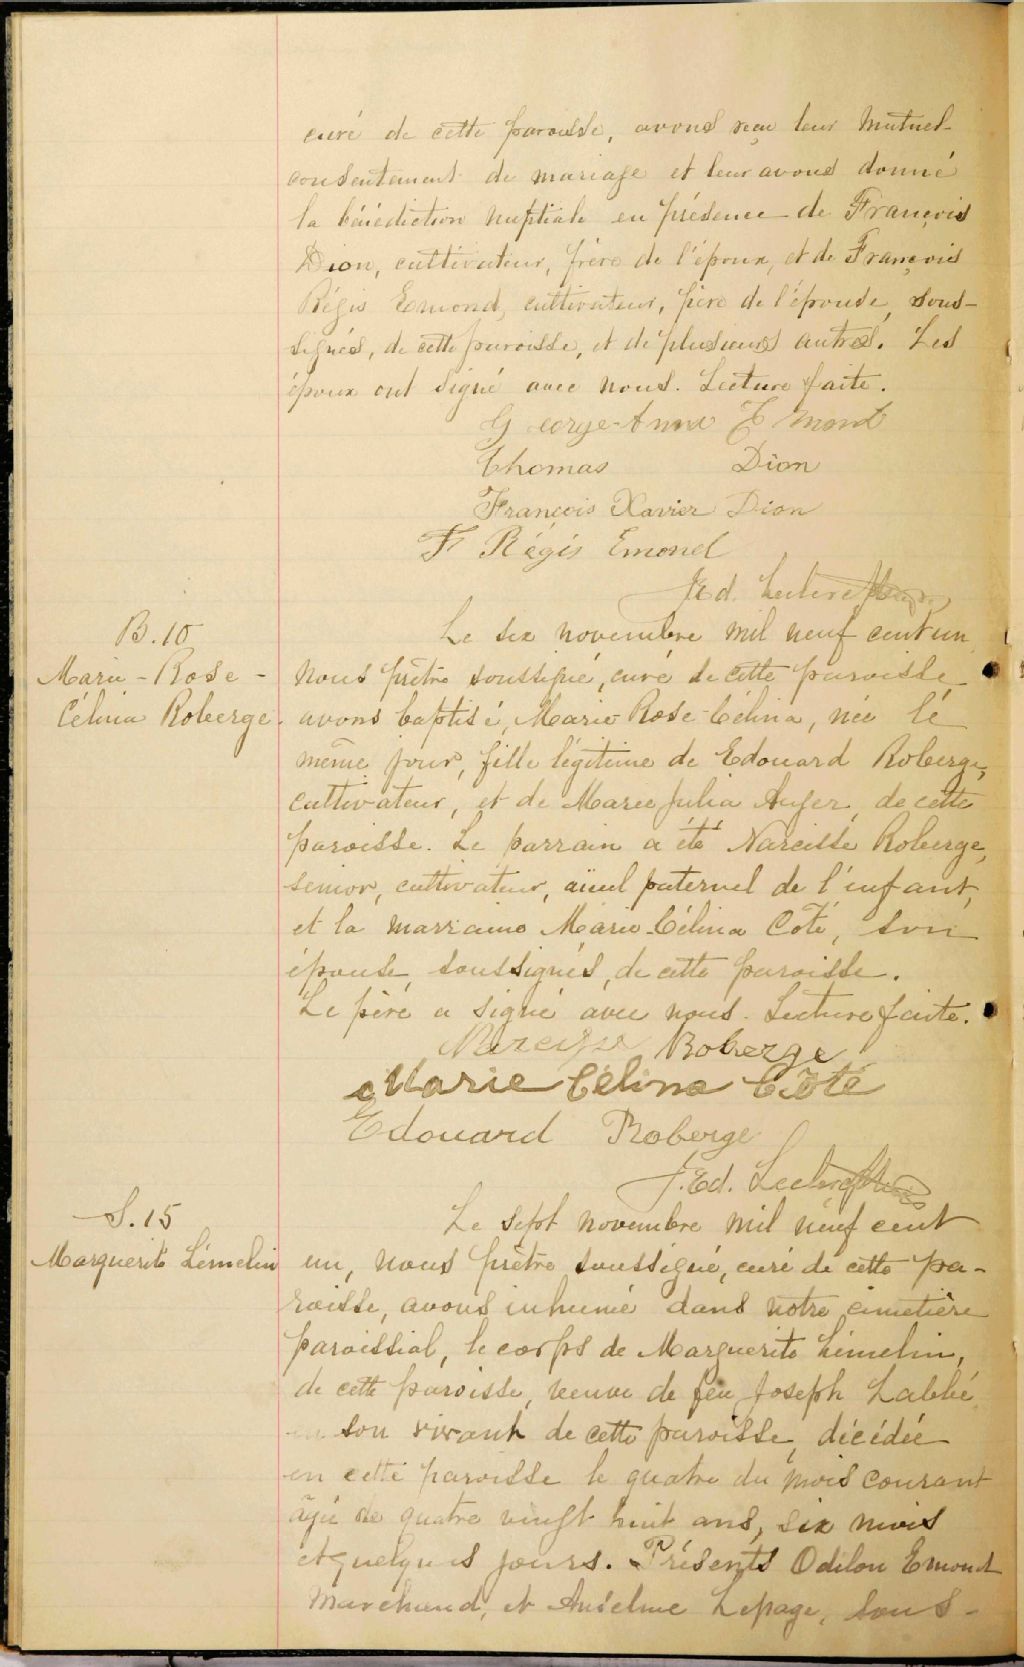 curé de cette paroisse, avons reçu leur mutuel
consentement de mariage et leur avons donné
la bénédiction nuptiale en présence de François
Dion, cultivateur, frère de l'époux, et de François
Régis Emond, cultivateur, père de l'épouse, sous-
signés, de cette paroisse, et de plusieurs autres. Les
époux ont signé avec nous. Lecture faite.
George-Anna Emond
Thomas Dion
François Xavier Dion
F Régis Emond
J. Ed. Leclerc Ptre
B. 10
Marie-Rose-
Célina Roberge.
Le six novembre mil neuf cent un,
nous prêtre soussigné, curé de cette paroisse
avons baptisé, Marie Rose-Célina, née le
même jour, fille légitime de Edouard Roberge,
cultivateur, et de Marie Julia Auger, de cette
paroisse. Le parrain a été Narcisse Roberge,
senior, cultivateur, aïeul paternel de l'enfant,
et la marraine Marie-Célina Coté, son
épouse, soussignés, de cette paroisse.
Le père a signé avec nous. Lecture faite.
Narcisse Roberge
Marie Célina Côté
Edouard Roberge
J. Ed. Leclerc Ptre
S. 15
Marguerite Lémelin
Le sept novembre mil neuf cent
un, nous prêtre soussigné, curé de cette pa-
roisse, avons inhumé dans notre cimetière
paroissial, le corps de Marguerite Lémelin,
de cette paroisse, veuve de feu Joseph Labbé
en son vivant de cette paroisse, décédée
en cette paroisse le quatre du mois courant
âgée de quatre vingt huit ans, six mois
et quelques jours. Présents Odilon Emond
marchand, et Anselme Lepage, sous-